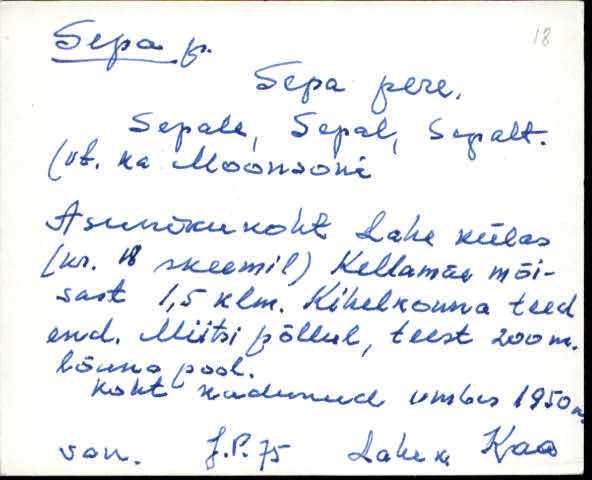 18
Sepa p.
Sepa pere,
Sepale, Sepal, Sepalt.
(vt. ka Moonsoni
Asunikukoht Lahe külas
(nr. 18 skeemil) Kellamäe mõi-
sast 1,5 klm. Kihelkonna teed
end. Miitsi põllul, teest 200 m.
lõuna pool.
Koht kadunud umbes 1950
van. J.P. 75 Lahe k Kaa